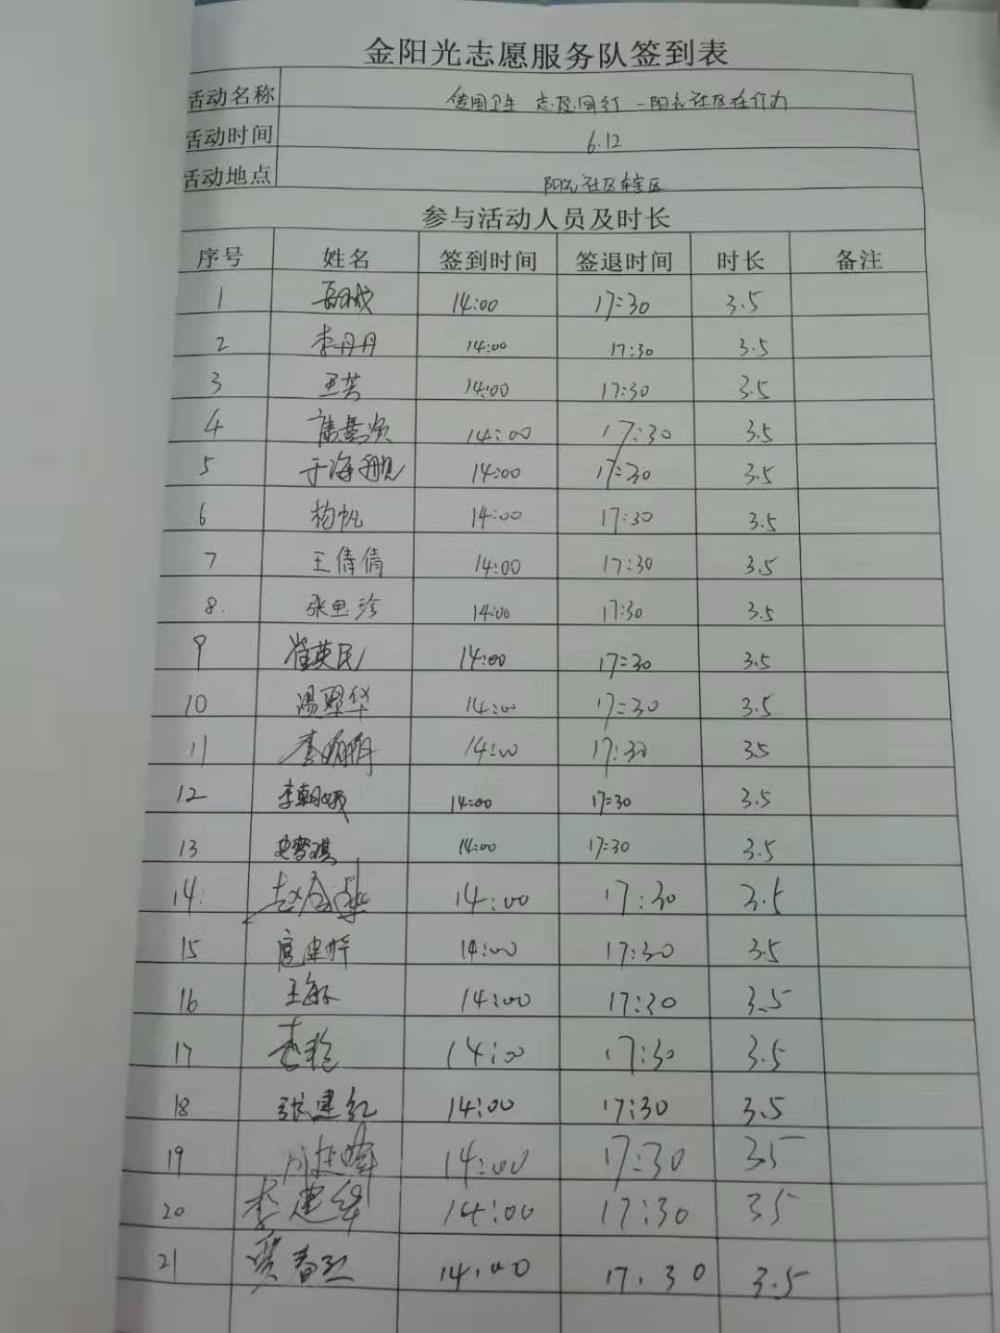 金阳光志愿服务队签到表
活动名称 志愿同行 一阳光社区在行动
活动时间 6.12
活动地点 阳光社区辖区
参与活动人员及时长
序号 姓名 签到时间 签退时间 时长 备注
1 14:00 17:30 3.5
2 李丹丹 14:00 17:30 3.5
3 王芸 14:00 17:30 3.5
4 14:00 17:30 3.5
5 于海靓 14:00 17:30 3.5
6 杨帆 14:00 17:30 3.5
7 王倩倩 14:00 17:30 3.5
8. 张思珍 14:00 17:30 3.5
9 崔英民 14:00 17:30 3.5
10 14:00 17:30 3.5
11 14:00 17:30 35
12 李朝娥 14:00 17:30 3.5
13 史雪琪 14:00 17:30 3.5
14. 14:00 17:30 3.5
15 14:00 17:30 3.5
16 王敏 14:00 17:30 3.5
17 14:00 17:30 3.5
18 张建红 14:00 17:30 3.5
19 14:00 17:30 35
20 李建华 14:00 17:30 35
21 贾春红 14:00 17.30 3.5